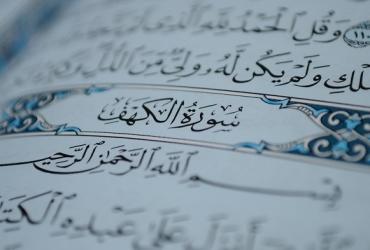 وَقُلِ ٱلْحَمْدُ لِلَّهِ ٱلَّذِى
ٱلْمُلْكِ وَلَمْ يَكُن لَّهُۥ وَلِىٌّ مِّنَ ٱلذُّلِّ وَكَبِّرْهُ
سُورَةُ الكَهْفِ
بِسْمِ ٱللَّهِ ٱلرَّحْمَٰنِ ٱلرَّحِيمِ
أَنزَلَ عَلَىٰ عَبْدِهِ ٱلْكِتَٰبَ